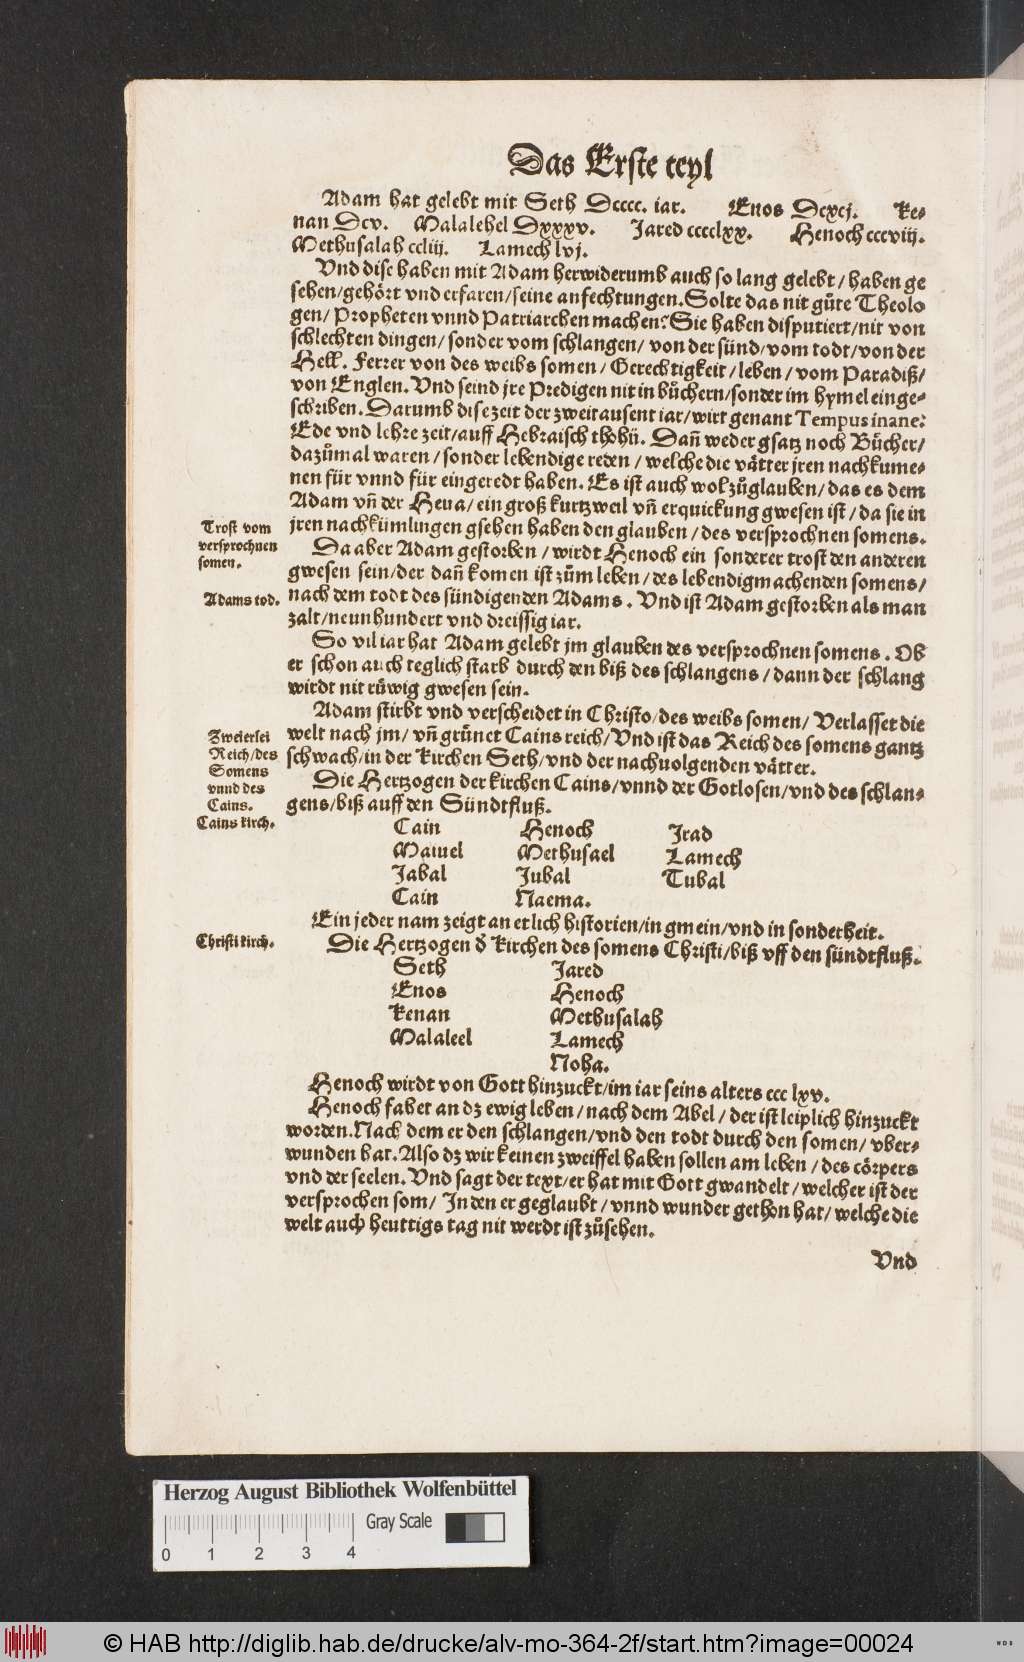 Das Erste teyl
Adam hat gelebt mit Seth Dcccc. iar. Enos Dcxcj. Ke-
nan Dcv. Malalehel Dxxxv. Jared cccclxx. Henoch cccviij.
Methusalah ccliij. Lamech lvj.
Vnd dise haben mit Adam herwiderumb auch so lang gelebt / haben ge
sehen/gehört vnd erfaren/seine anfechtungen. Solte das nit gůte Theolo
gen/ Propheten vnnd Patriarchen machen? Sie haben disputiert/nit von
schlechten dingen/ sonder vom schlangen/ von der sünd/vom todt/von der
Hell. Ferrer von des weibs somen / Gerechtigkeit / leben / vom Paradiß/
von Englen. Vnd seind jre Predigen nit in bůchern/sonder im hymel einge-
schriben. Darumb dise zeit der zweitausent iar/wirt genant Tempus inane:
Ede vnd lehre zeit/auff Hebraisch thohü. Dañ weder gsatz noch Bůcher/
dazůmal waren / sonder lebendige reden / welche die vätter jren nachkume-
nen für vnnd für eingeredt haben. Es ist auch wol zůglauben/das es dem
Adam vñ der Heua/ein groß kurtzweil vñ erquickung gwesen ist / da sie in
jren nachkümlingen gsehen haben den glauben / des versprochnen somens.
Trost vom
versprochnen
somen.
Da aber Adam gestorben / wirdt Henoch ein sonderer trost den anderen
gwesen sein/der dañ komen ist zům leben / des lebendigmachenden somens/
Adams tod.
nach dem todt des sündigenden Adams. Vnd ist Adam gestorben als man
zalt/neunhundert vnd dreissig iar.
So vil iar hat Adam gelebt jm glauben des versprochnen somens. Ob
er schon auch teglich starb durch den biß des schlangens / dann der schlang
wirdt nit růwig gwesen sein.
Adam stirbt vnd verscheidet in Christo/des weibs somen/ Verlasset die
welt nach jm/ vñ grůnet Cains reich/ Vnd ist das Reich des somens gantz
schwach/in der Kirchen Seth/vnd der nachuolgenden vätter.
Zweierlei
Reich/des
Somens
vnnd des
Cains.
Die Hertzogen der kirchen Cains/vnnd der Gotlosen/vnd des schlan-
gens/biß auff den Sündtfluß.
Cains kirch.
Cain Henoch Irad
Maiuel Methusael Lamech
Jabal Jubal Tubal
Cain Naema.
Ein jeder nam zeigt an etlich historien/in gmein/vnd in sonderheit.
Christi kirch.
Die Hertzogen d̕ kirchen des somens Christi/biß vff den sündtfluß.
Seth Jared
Enos Henoch
Kenan Methusalah
Malaleel Lamech
Noha.
Henoch wirdt von Gott hinzuckt/im iar seins alters ccc lxv.
Henoch fahet an dz ewig leben / nach dem Abel / der ist leiplich hinzuckt
worden. Nach dem er den schlangen/vnd den todt durch den somen/ vber-
wunden hat. Also dz wir keinen zweiffel haben sollen am leben / des cörpers
vnd der seelen. Vnd sagt der text/er hat mit Gott gwandelt / welcher ist der
versprochen som/ In den er geglaubt / vnnd wunder gethon hat/ welche die
welt auch heuttigs tag nit werdt ist zůsehen.
Vnd
Herzog August Bibliothek Wolfenbüttel
Gray Scale
0 1 2 3 4
© HAB http://diglib.hab.de/drucke/alv-mo-364-2f/start.htm?image=00024